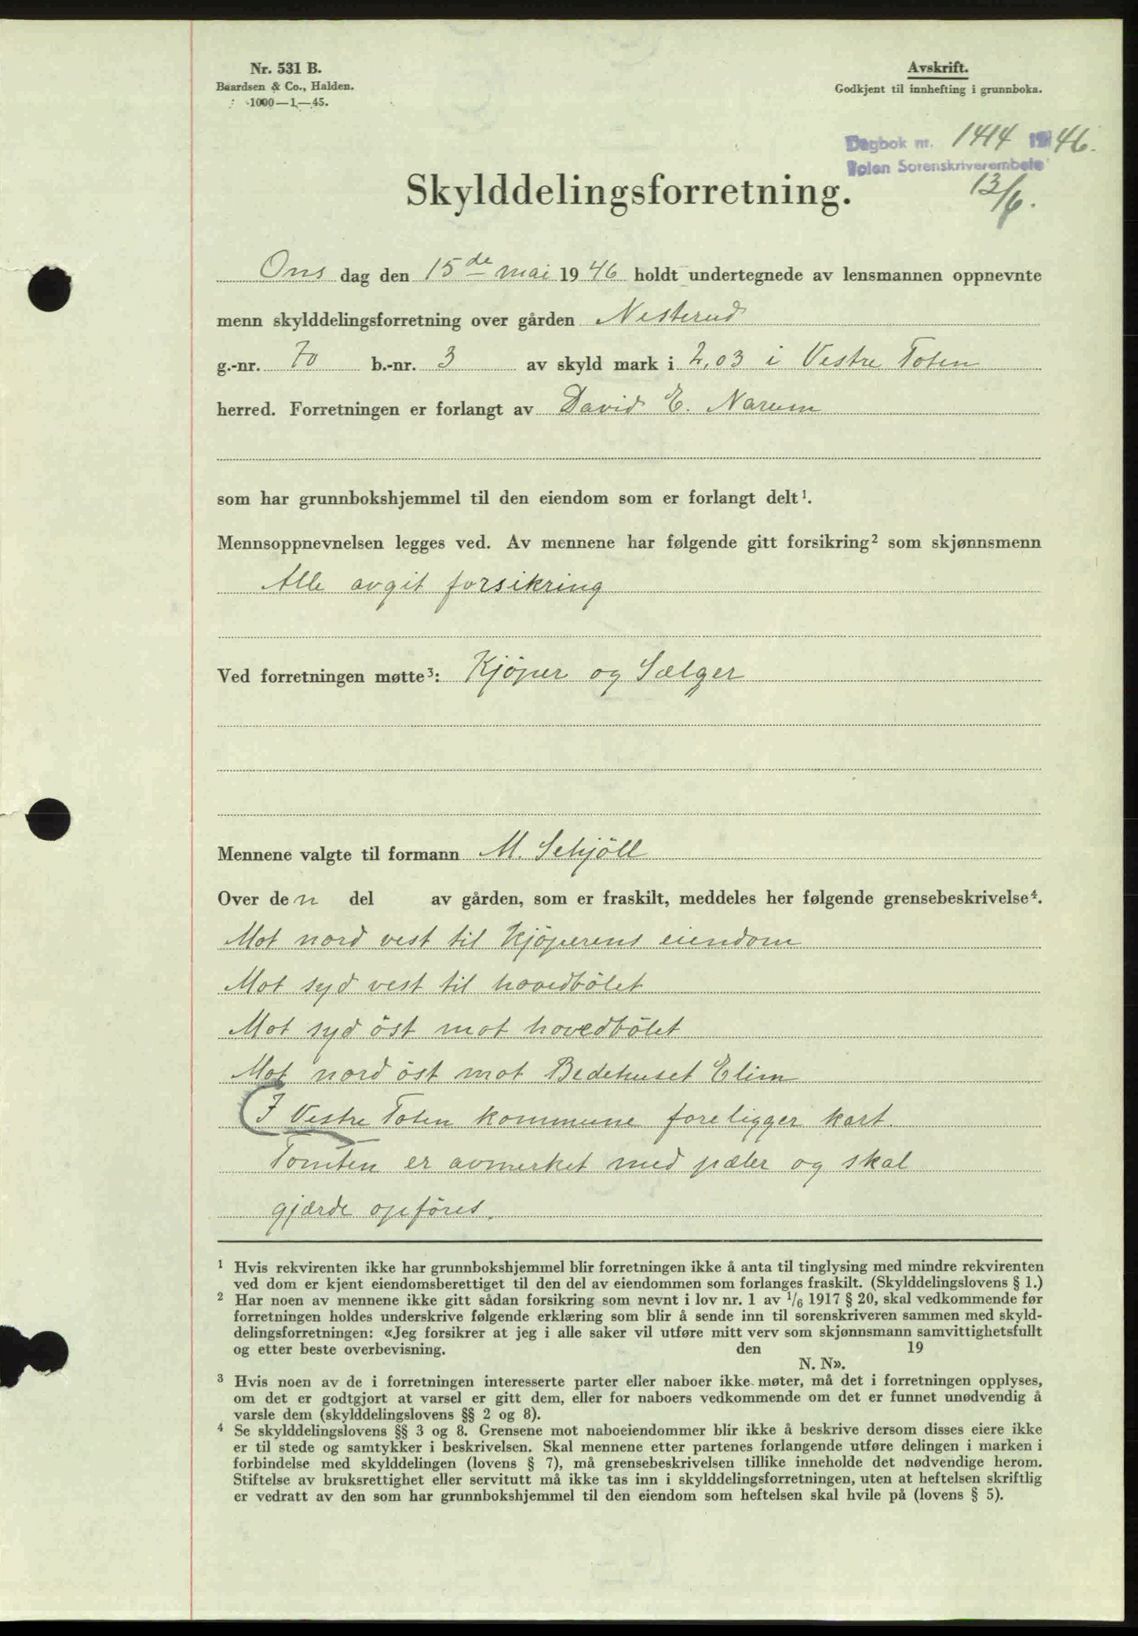 Nr. 531 B.
Baardsen & Co., Halden.
1000—1—45.
Avskrift.
Godkjent til innhefting i grunnboka.
Dagbok nr. 1414 1946.
Toten Sorenskriverembete
13/6.
Skylddelingsforretning.
Ons dag den 15de mai 1946 holdt undertegnede av lensmannen oppnevnte
menn skylddelingsforretning over gården Nesterud
g.-nr. 70 b.-nr. 3 av skyld mark i 2,03 i Vestre Toten
herred. Forretningen er forlangt av David E. Narum
som har grunnbokshjemmel til den eiendom som er forlangt delt¹.
Mennsoppnevnelsen legges ved. Av mennene har følgende gitt forsikring² som skjønnsmenn
Alle avgit forsikring
Ved forretningen møtte³: Kjöper og Sælger
Mennene valgte til formann M. Schjöll
Over den del av gården, som er fraskilt, meddeles her følgende grensebeskrivelse⁴.
Mot nord vest til Kjöperens eiendom
Mot syd vest til hovedbölet
Mot syd öst mot hovedbölet
Mot nord öst mot Bedehuset Elim
I Vestre Toten kommune foreligger kart.
Tomten er avmerket med pæler og skal
gjærde opföres.
¹ Hvis rekvirenten ikke har grunnbokshjemmel blir forretningen ikke å anta til tinglysing med mindre rekvirenten
ved dom er kjent eiendomsberettiget til den del av eiendommen som forlanges fraskilt. (Skylddelingslovens § 1.)
² Har noen av mennene ikke gitt sådan forsikring som nevnt i lov nr. 1 av 1/6 1917 § 20, skal vedkommende før
forretningen holdes underskrive følgende erklæring som blir å sende inn til sorenskriveren sammen med skyld-
delingsforretningen: «Jeg forsikrer at jeg i alle saker vil utføre mitt verv som skjønnsmann samvittighetsfullt
og etter beste overbevisning. den 19
N. N».
³ Hvis noen av de i forretningen interesserte parter eller naboer ikke møter, må det i forretningen opplyses,
om det er godtgjort at varsel er gitt dem, eller for naboers vedkommende om det er funnet unødvendig å
varsle dem (skylddelingslovens §§ 2 og 8).
⁴ Se skylddelingslovens §§ 3 og 8. Grensene mot naboeiendommer blir ikke å beskrive dersom disses eiere ikke
er til stede og samtykker i beskrivelsen. Skal mennene etter partenes forlangende utføre delingen i marken i
forbindelse med skylddelingen (lovens § 7), må grensebeskrivelsen tillike inneholde det nødvendige herom.
Stiftelse av bruksrettighet eller servitutt må ikke tas inn i skylddelingsforretningen, uten at heftelsen skriftlig
er vedratt av den som har grunnbokshjemmel til den eiendom som heftelsen skal hvile på (lovens § 5).